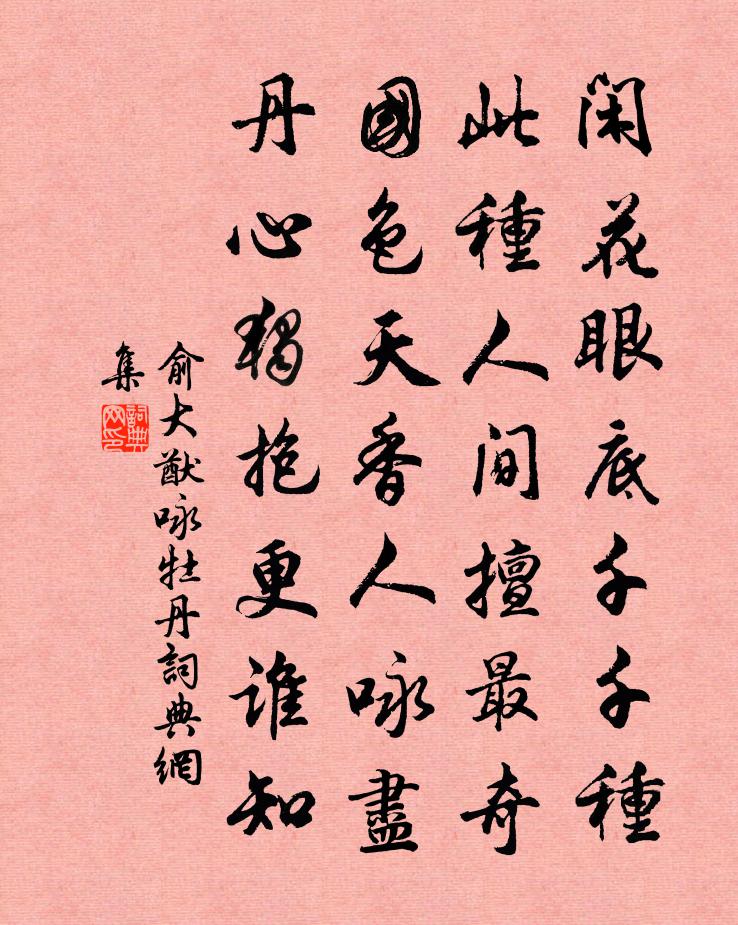 閑花眼底千千種
此種人間擅最奇
國色天香人咏盡
丹心獨抱更誰知
俞大猷咏牡丹詞典網
集
詞典
网印